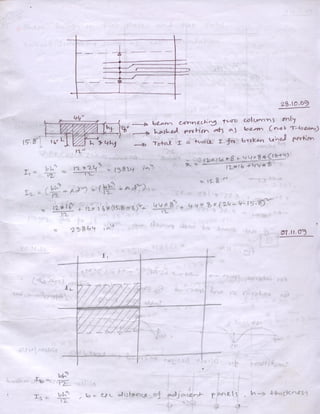 28.10.09
44"
→ beam connecting two columns only
→ hashed portion acts as beam (not T-beam)
→ Total I = twice I for broken lined portion
15.8"
16"
h ≯ 4hf
12"
I₁ = bh³/12 = 12×24³/12 = 13824 in⁴
x̄ = 12×16×8 + 44×8×(16+4) / 12×16+44×8
= 15.8"
I₂ = (bh³/12 + Ad²) + (bh³/12 + Ad²)
12×16³/12 + 12×16×(15.8-8)² + 44×8³/12 + 44×8×(24-4-15.8)²
= 23864 in⁴
01.11.09
l₁
l₂
I_b = bh³/12
I_s = bh³/12 , b = c/c distance of adjacent panels, h → thickness